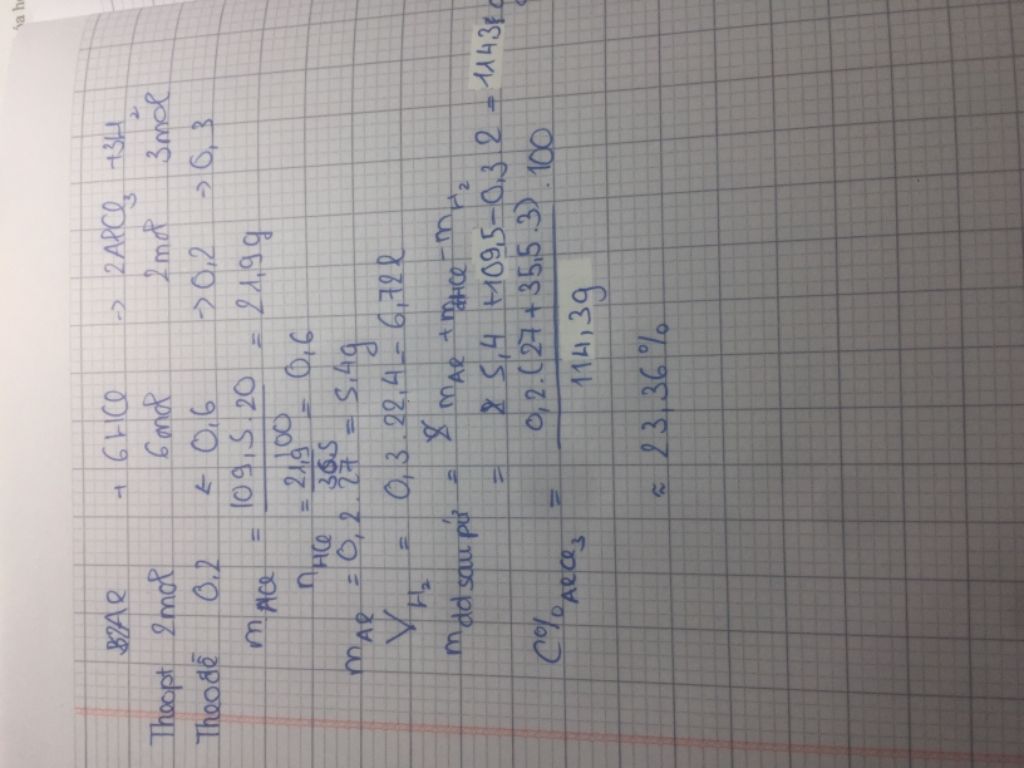 2Al + 6HCl -> 2AlCl3 + 3H2
Theopt 2mol 6mol 2mol 3mol
Theođề 0,2 <- 0,6 -> 0,2 -> 0,3
mHCl = 109,5.20/100 = 21,9g
nHCl = 21,9/36,5 = 0,6
mAl = 0,2.27 = 5,4g
VH2 = 0,3.22,4 = 6,72l
mddsaupứ = mAl + mddHCl - mH2
= 5,4 + 109,5 - 0,3 2 = 114,3g
C%AlCl3 = 0,2.(27+35,5.3)/114,3g .100
≈ 23,36%